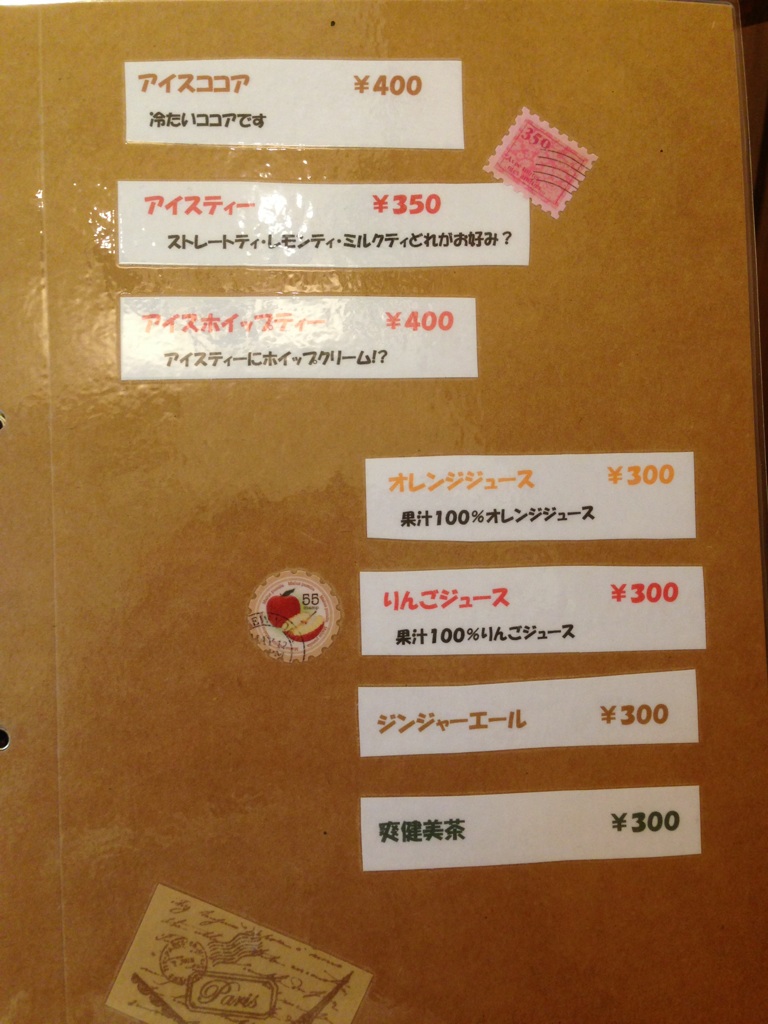 アイスココア ¥400
冷たいココアです
350
アイスティー ¥350
ストレートティ・レモンティ・ミルクティどれがお好み？
アイスホイップティー ¥400
アイスティーにホイップクリーム!?
オレンジジュース ¥300
果汁100%オレンジジュース
55
りんごジュース ¥300
果汁100%りんごジュース
ジンジャーエール ¥300
爽健美茶 ¥300
Paris